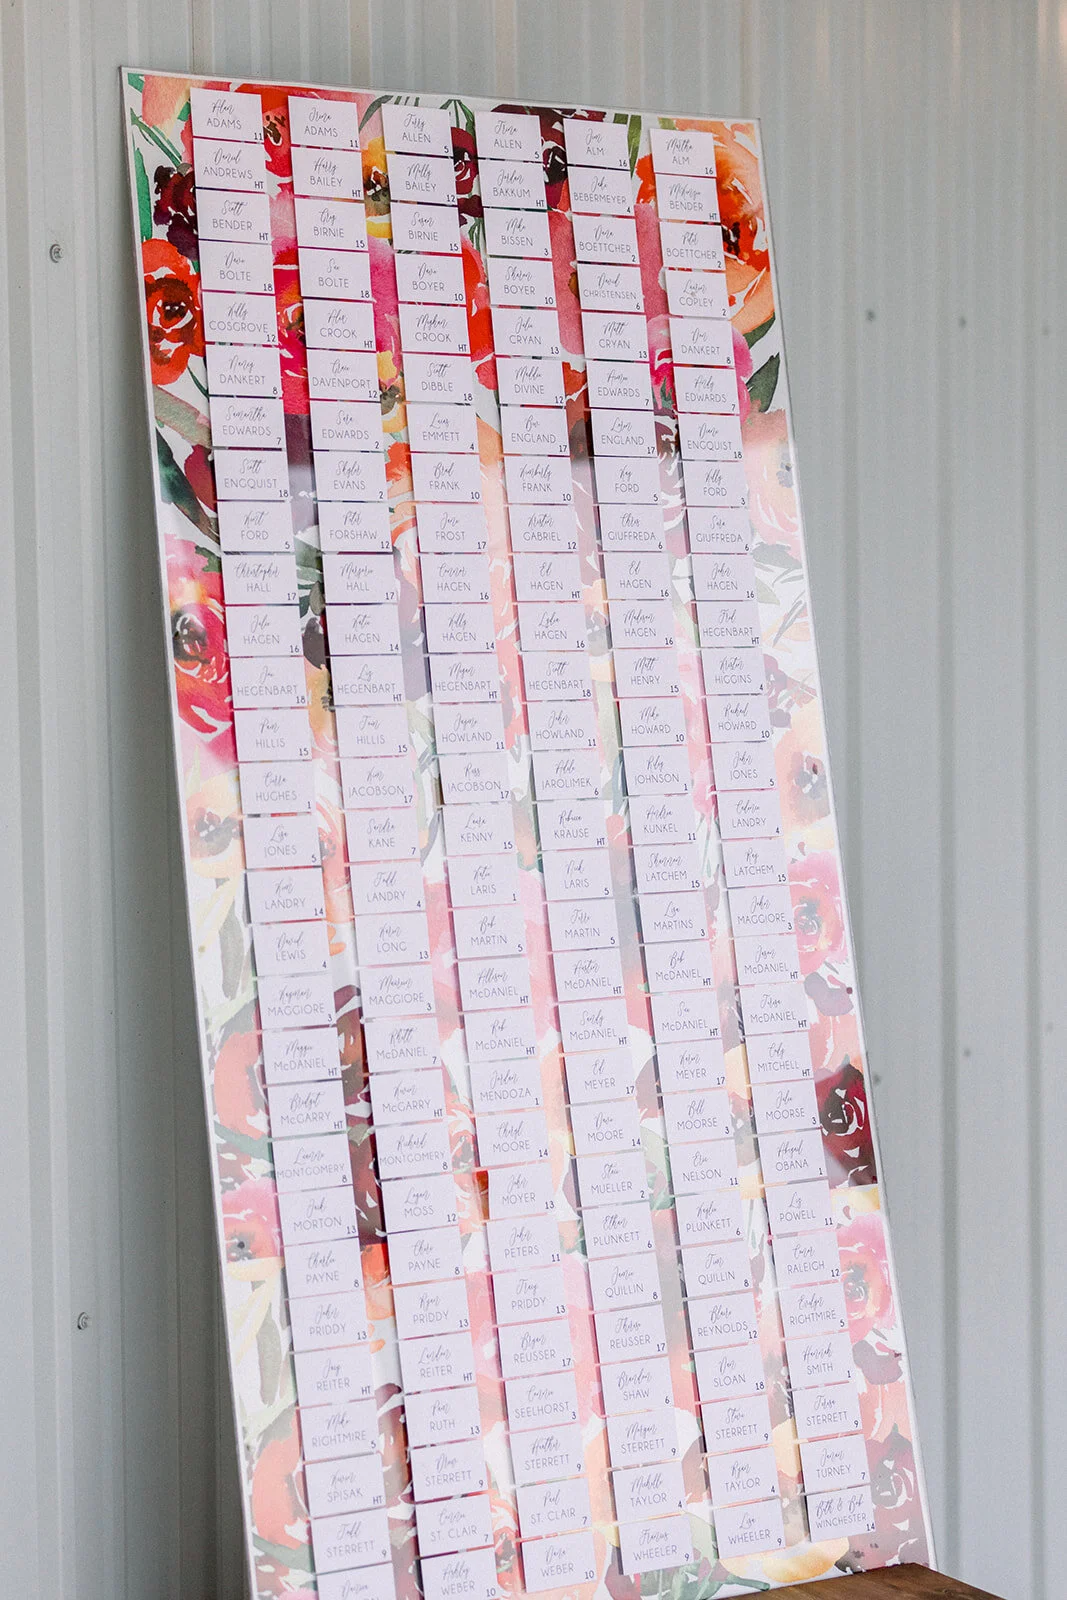 Alan
ADAMS
11
ADAMS
11
Terry
ALLEN
5
Trina
ALLEN
5
Jim
ALM
16
Martha
ALM
16
David
ANDREWS
HT
Harry
BAILEY
HT
Molly
BAILEY
12
Jordan
BAKKUM
HT
Jake
BEBERMEYER
4
McKenzie
BENDER
HT
Scott
BENDER
HT
Greg
BIRNIE
15
Susan
BIRNIE
15
Mike
BISSEN
3
Dana
BOETTCHER
2
Peter
BOETTCHER
2
Dave
BOLTE
18
Sue
BOLTE
18
Dave
BOYER
10
Sharon
BOYER
10
David
CHRISTENSEN
6
Lauren
COPLEY
2
Kelly
COSGROVE
12
Alex
CROOK
HT
Meghan
CROOK
HT
Julie
CRYAN
13
Matt
CRYAN
13
Don
DANKERT
8
Nancy
DANKERT
8
Grace
DAVENPORT
12
Scott
DIBBLE
18
Maddie
DIVINE
12
Aimee
EDWARDS
7
Andy
EDWARDS
7
Samantha
EDWARDS
7
Sara
EDWARDS
2
Lucas
EMMETT
4
Ben
ENGLAND
17
Loren
ENGLAND
17
Diane
ENGQUIST
18
Scott
ENGQUIST
18
Skyler
EVANS
2
Brad
FRANK
10
Kimberly
FRANK
10
Kay
FORD
5
Kelly
FORD
3
Kent
FORD
5
Peter
FORSHAW
12
Jane
FROST
17
Kristin
GABRIEL
12
Chris
GIUFFREDA
6
Sara
GIUFFREDA
6
Christopher
HALL
17
Marjorie
HALL
17
Connor
HAGEN
16
Ed
HAGEN
HT
Ed
HAGEN
16
John
HAGEN
16
Julie
HAGEN
16
Katie
HAGEN
14
Kelly
HAGEN
14
Lydia
HAGEN
16
Madison
HAGEN
16
Fred
HEGENBART
HT
Joe
HEGENBART
18
Liz
HEGENBART
HT
Megan
HEGENBART
HT
Scott
HEGENBART
18
Matt
HENRY
15
Kristin
HIGGINS
4
Pam
HILLIS
15
Tom
HILLIS
15
Jayne
HOWLAND
11
John
HOWLAND
11
Mike
HOWARD
10
Rachel
HOWARD
10
Cierra
HUGHES
1
Kim
JACOBSON
17
Russ
JACOBSON
17
Addie
JAROLIMEK
6
Riley
JOHNSON
1
John
JONES
5
Lisa
JONES
5
Sandra
KANE
7
Laura
KENNY
15
Rebecca
KRAUSE
HT
Andrea
KUNKEL
11
Cadence
LANDRY
4
Kim
LANDRY
14
Todd
LANDRY
4
Katie
LARIS
1
Nick
LARIS
5
Shannon
LATCHEM
15
Ray
LATCHEM
15
David
LEWIS
4
Karin
LONG
13
Bob
MARTIN
5
Terri
MARTIN
5
Lisa
MARTINS
3
John
MAGGIORE
3
MAGGIORE
3
Maureen
MAGGIORE
3
Allison
McDANIEL
HT
Austin
McDANIEL
HT
Bob
McDANIEL
HT
Jason
McDANIEL
HT
Maggie
McDANIEL
HT
Rhett
McDANIEL
7
Rob
McDANIEL
HT
Sandy
McDANIEL
HT
Sue
McDANIEL
HT
Teresa
McDANIEL
HT
Bridget
McGARRY
HT
Karen
McGARRY
HT
Jordan
MENDOZA
1
Ed
MEYER
17
Karen
MEYER
17
Cody
MITCHELL
HT
Leanne
MONTGOMERY
8
Richard
MONTGOMERY
8
Cheryl
MOORE
14
Dave
MOORE
14
Bill
MOORSE
3
Julie
MOORSE
3
Jack
MORTON
13
Logan
MOSS
12
John
MOYER
13
Staci
MUELLER
2
Eric
NELSON
11
Abigail
OBANA
1
Charlie
PAYNE
8
Chris
PAYNE
8
John
PETERS
11
Ethan
PLUNKETT
6
Kaylin
PLUNKETT
6
Liz
POWELL
11
John
PRIDDY
13
Ryan
PRIDDY
13
Tracy
PRIDDY
13
Jamie
QUILLIN
8
Jim
QUILLIN
8
Conor
RALEIGH
12
Jay
REITER
HT
Landon
REITER
HT
Bryan
REUSSER
17
Theresa
REUSSER
17
Blaire
REYNOLDS
12
Evelyn
RIGHTMIRE
5
Mike
RIGHTMIRE
5
Pam
RUTH
13
Connie
SEELHORST
3
Brandon
SHAW
6
Dan
SLOAN
18
Hannah
SMITH
1
Karen
SPISAK
HT
STERRETT
9
Heather
STERRETT
9
Morgan
STERRETT
9
Steve
STERRETT
9
Teresa
STERRETT
9
Todd
STERRETT
9
Connie
ST. CLAIR
7
Paul
ST. CLAIR
7
Michelle
TAYLOR
4
Ryan
TAYLOR
4
Janan
TURNEY
7
Ashley
WEBER
10
Dana
WEBER
10
Francis
WHEELER
9
Lisa
WHEELER
9
Beth & Bob
WINCHESTER
14